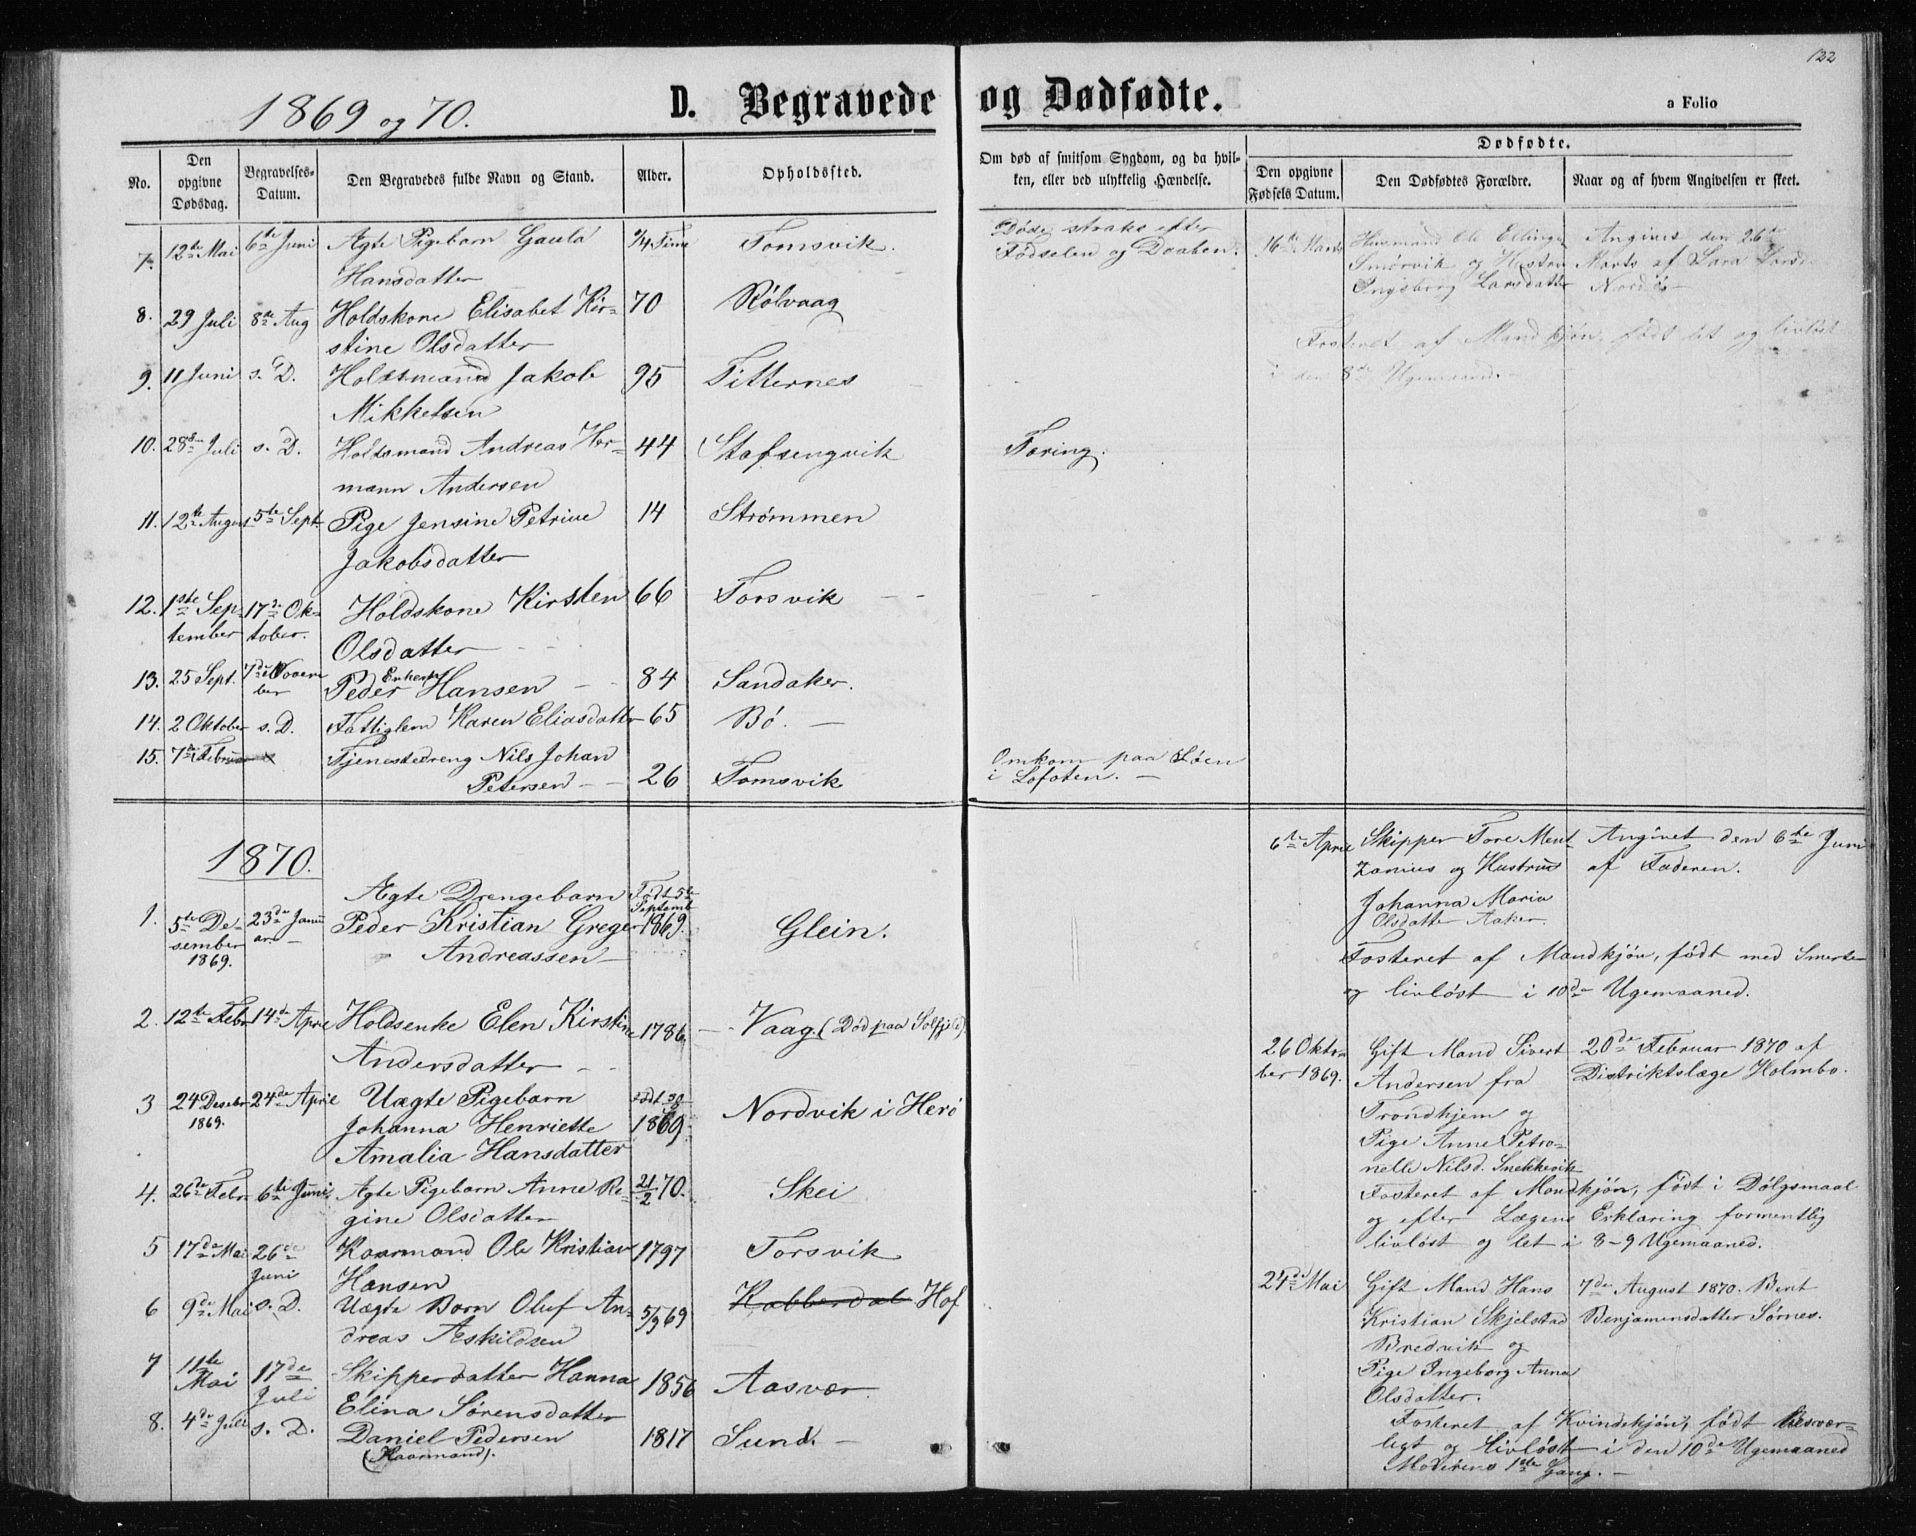 122
1869 og 70.
D. Begravede og Dødfødte.
a Folio
No.
Den opgivne Dødsdag.
Begravelses-Datum.
Den Begravedes fulde Navn og Stand.
Alder.
Opholdssted.
Om død af smitsom Sygdom, og da hvil-
ken, eller ved ulykkelig Hændelse.
Dødfødte.
Den opgivne Fødsels Datum.
Den Dødfødtes Forældre.
Naar og af hvem Angivelsen er skeet.
7. 12te Mai 6te Juni Ægte Pigebarn Gaula Time Tomsvik.
Hansdatter
Døde straks efter
Fødselen og Daaben.
8. 29 Juli 8de Aug Holdskone Elisabet Kir- 70 Rølvaag
stine Olsdatter
9. 11 Juni s. D. Holdsmand Jakob 95 Titternes
Mikkelsen
10. 28de Juli s. D. Holdsmand Andreas Hor- 44 Stafsengvik Tæring.
mann Andersen
11. 12te August 5te Sept. Pige Jensine Petrine 14 Strømmen
Jakobsdatter
12. 1ste Sep- 17de Ok- Holdskone Kirsten 66 Forsvik
tember tober. Olsdatter
13. 25 Sept. 7de Novem Enkem Peder Hansen 84 Sandaker.
ber
14. 2 Oktober s. D. Fattiglem Karen Eliasdatter 65 Bø.
15. 7de Februar Tjenestedreng Nils Johan
Petersen 26 Tomsvik
Omkom paa Søen
i Lofoten.
16de Marts Husmand Ole Ellingsen
Smørvik og Hustru
Ingeborg Larsdatter
Angives den 26de
Marts af Lara
Nordøs
Fosteret af Mandkjøn, født let og livløst
i den 8de Ugemaaned.
1870.
1. 5te De- 23de Janu Ægte Drengebarn Født 5te
sember ar Peder Kristian Greger Septemb 1869. Glein.
1869. Andreassen
2. 12te Febr 14de April Holdsenke Elen Kirstine 1786 Vaag. (Død paa Solfjeld)
Andersdatter
3 24 Desebr 24de April Uægte Pigebarn født 30
1869. Johanna Henriette 1869 Nordvik i Herø
Amalia Hansdatter
4. 26de Febr 6te Juni Ægte Pigebarn Anne Re- 21/2 70. Skei
gine Olsdatter
5 17de Mai 26de Kaarmand Ole Kristian 1797 Forsvik
Juni Hansen
6 9de Mai s. D. Uægte Barn Oluf An- 5/9 69 Kobberdal Hof
dreas Askildsen
7 11te 17de Skipperdatter Hanna 1856 Aasvær
Mai Juli Elina Sørensdatter
8. 4de Juli s. D. Daniel Pedersen 1817 Sund.
(Kaarmand).
6te April Skipper Tore Ment- Angivet den 6te Juni
zonius og Hustrus af Faderen.
Johanna Maria
Olsdatter Aaker.
Fosteret af Mandkjøn, født med Smerte
og livløst i 10de Ugemaaned.
26 Okto- Gift Mand Sivert 20de Februar 1870 af
ber 1869. Andersen fra Distriktslæge Holmbo.
Trondhjem og
Pige Anne Petro-
nelle Nilsd. Snekkevik
Fosteret af Mandkjøn, født i Dølgsmaal
og efter Lægens Erklæring formentlig
livløst og let i 8-9 Ugemaaned.
24de Mai Gift Mand Hans 7de August 1870. Berit
Kristian Skjelstad Benjamensdatter Sørnes.
Bredvik og
Pige Ingeborg Anna
Olsdatter.
Fosteret af Kvindekjøn, født besvær-
ligt og livløst i den 10de Ugemaaned
Moderens 1ste Gang.